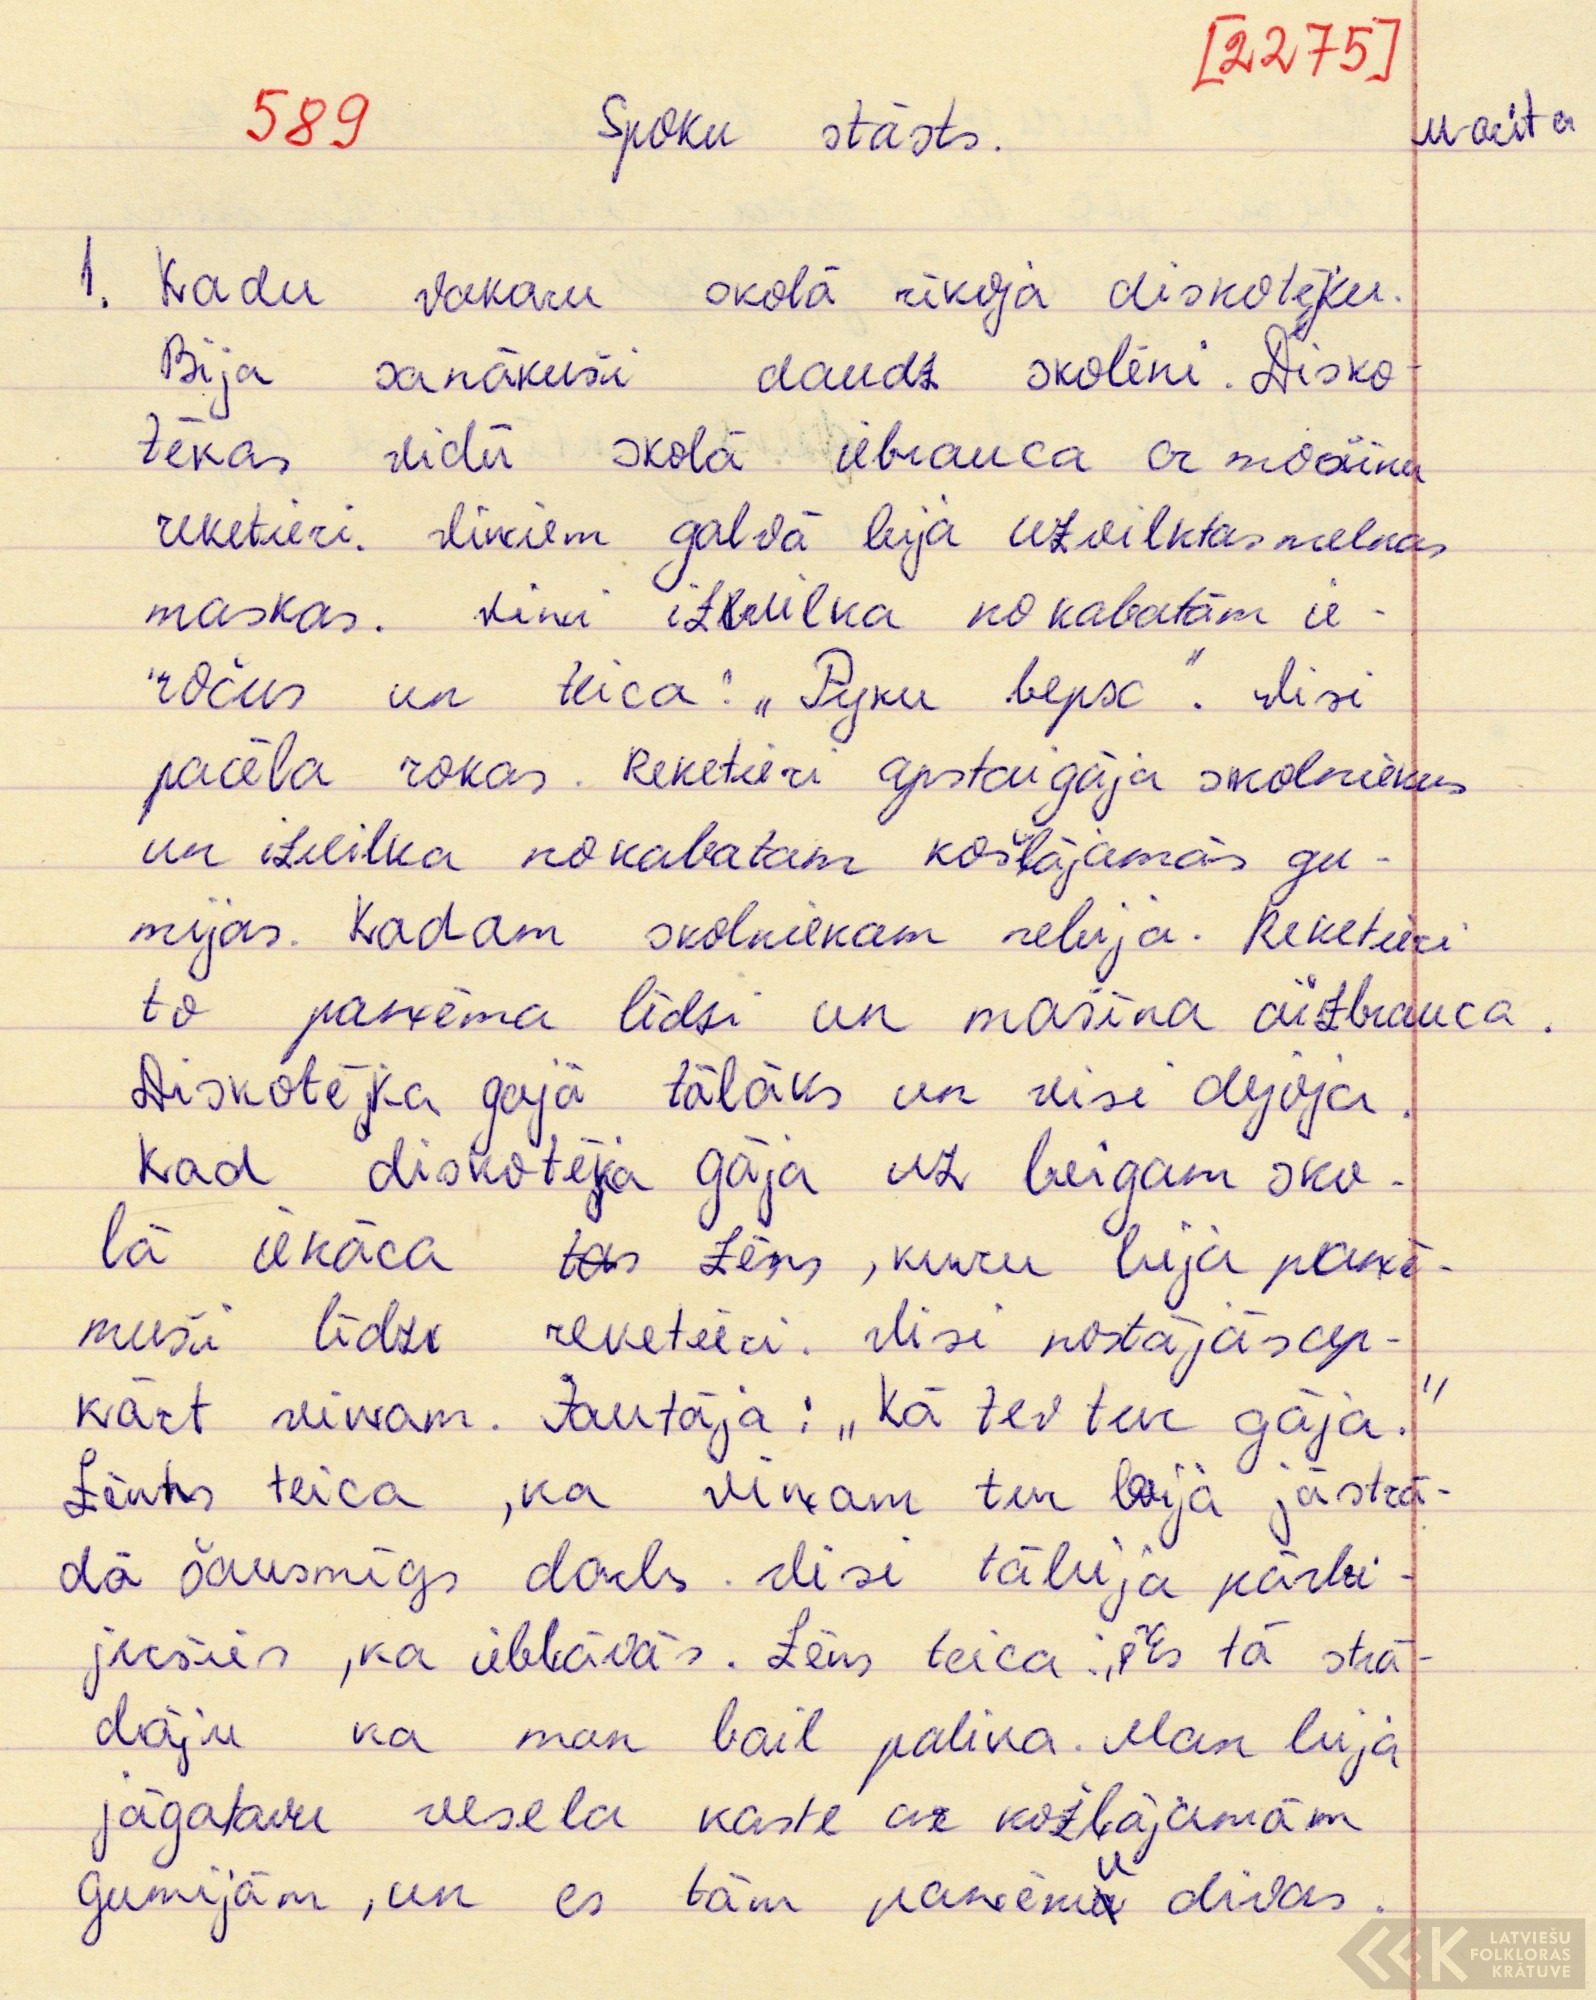 [2275]
589 Spoku stāsts. Marita
1. Kadu vakaru skolā rīkoja diskotēku.
Bija sanākuši daudz skolēni. Disko-
tēkas vidū skolā iebrauca ar mašīnu
reketieri. Viņiem galvā bija uzvilktas melnas
maskas. Viņi izvilka no kabatām ie-
ročus un teica: „Руки верх". Visi
pacēla rokas. Reketieri apstaigāja skolniekus
un izvilka no kabatam košļājamās gu-
mijas. Kadam skolniekam nebija. Reketieri
to paņēma līdzi un mašīna aizbrauca.
Diskotēka gajā tālāks un visi dejoja.
Kad diskotēka gāja uz beigam sko-
lā ienāca tas zēns, kuru bija paņē-
muši līdzi reketieri. Visi nostājās ap-
kārt viņam. Jautāja: „Kā tev tur gāja."
Zēns teica, ka viņam tur bija jāstrā-
dā šausmīgs darbs. Visi tā bija pārbi-
jušies, ka iebļāvās. Zēns teica: „Es tā strā-
dāju ka man bail palika. Man bija
jāgatavu vesela kaste ar košļājamām
gumijām, un es tām paņēmu divas.
LATVIEŠU
FOLKLORAS
KRĀTUVE